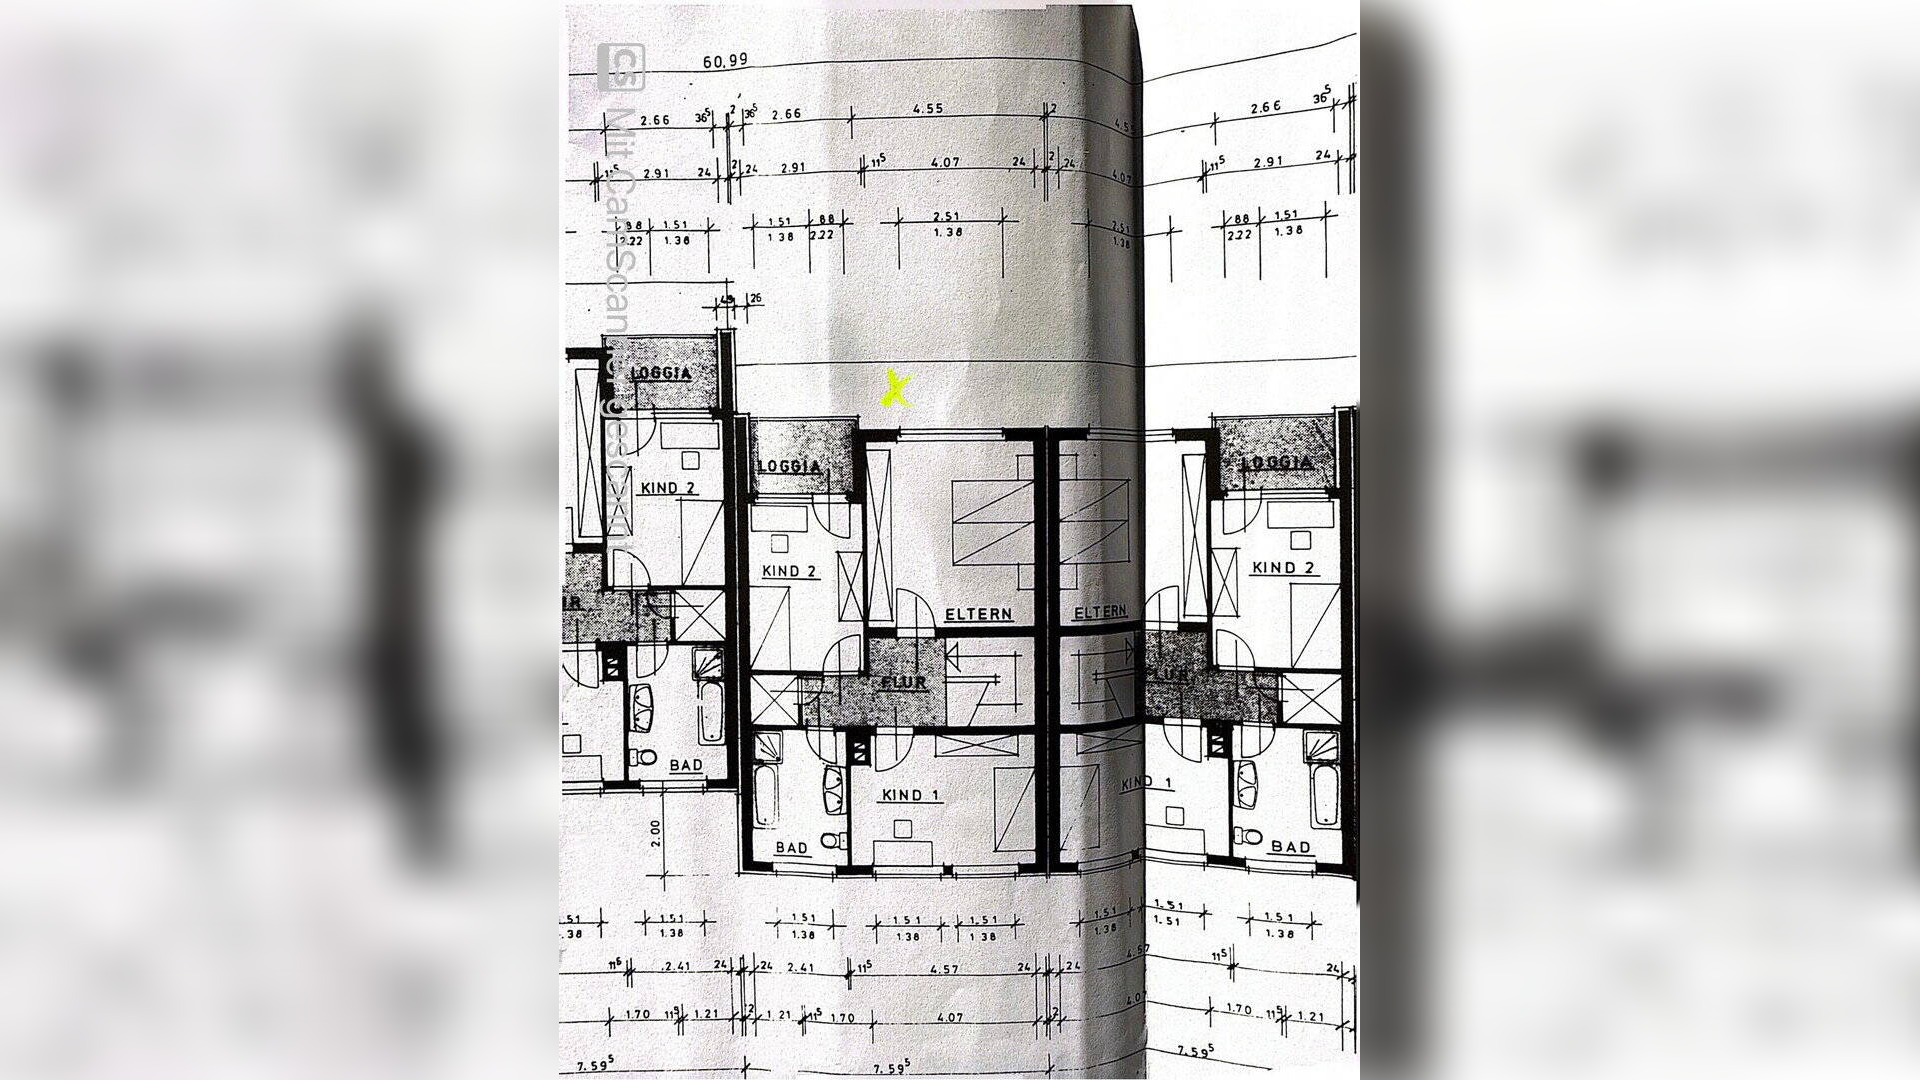 60,99
2.66 36⁵ 2 36⁵ 2.66 4.55 2 4.55 2.66 36⁵
11⁵ 2.91 24 2 24 2.91 11⁵ 4.07 24 2 24 4.07 11⁵ 2.91 24
88 1.51 1.51 88 2.51 2.51 88 1.51
2.22 1.38 1.38 2.22 1.38 1.38 2.22 1.38
49 26
LOGGIA
LOGGIA LOGGIA
KIND 2
KIND 2 KIND 2
ELTERN ELTERN
FLUR
BAD
KIND 1 KIND 1
BAD BAD
2.00
1.51 1.51 1.51 1.51 1.51 1.51 1.51
1.38 1.38 1.38 1.38 1.38 1.51 1.38
11⁵ 2.41 24 24 2.41 11⁵ 4.57 24 24 4.57 11⁵ 24
1.70 11⁵ 1.21 2 1.21 11⁵ 1.70 4.07 2 4.07 1.70 11⁵ 1.21
7.59⁵ 7.59⁵ 7.59⁵
CS Mit CamScanner gescannt